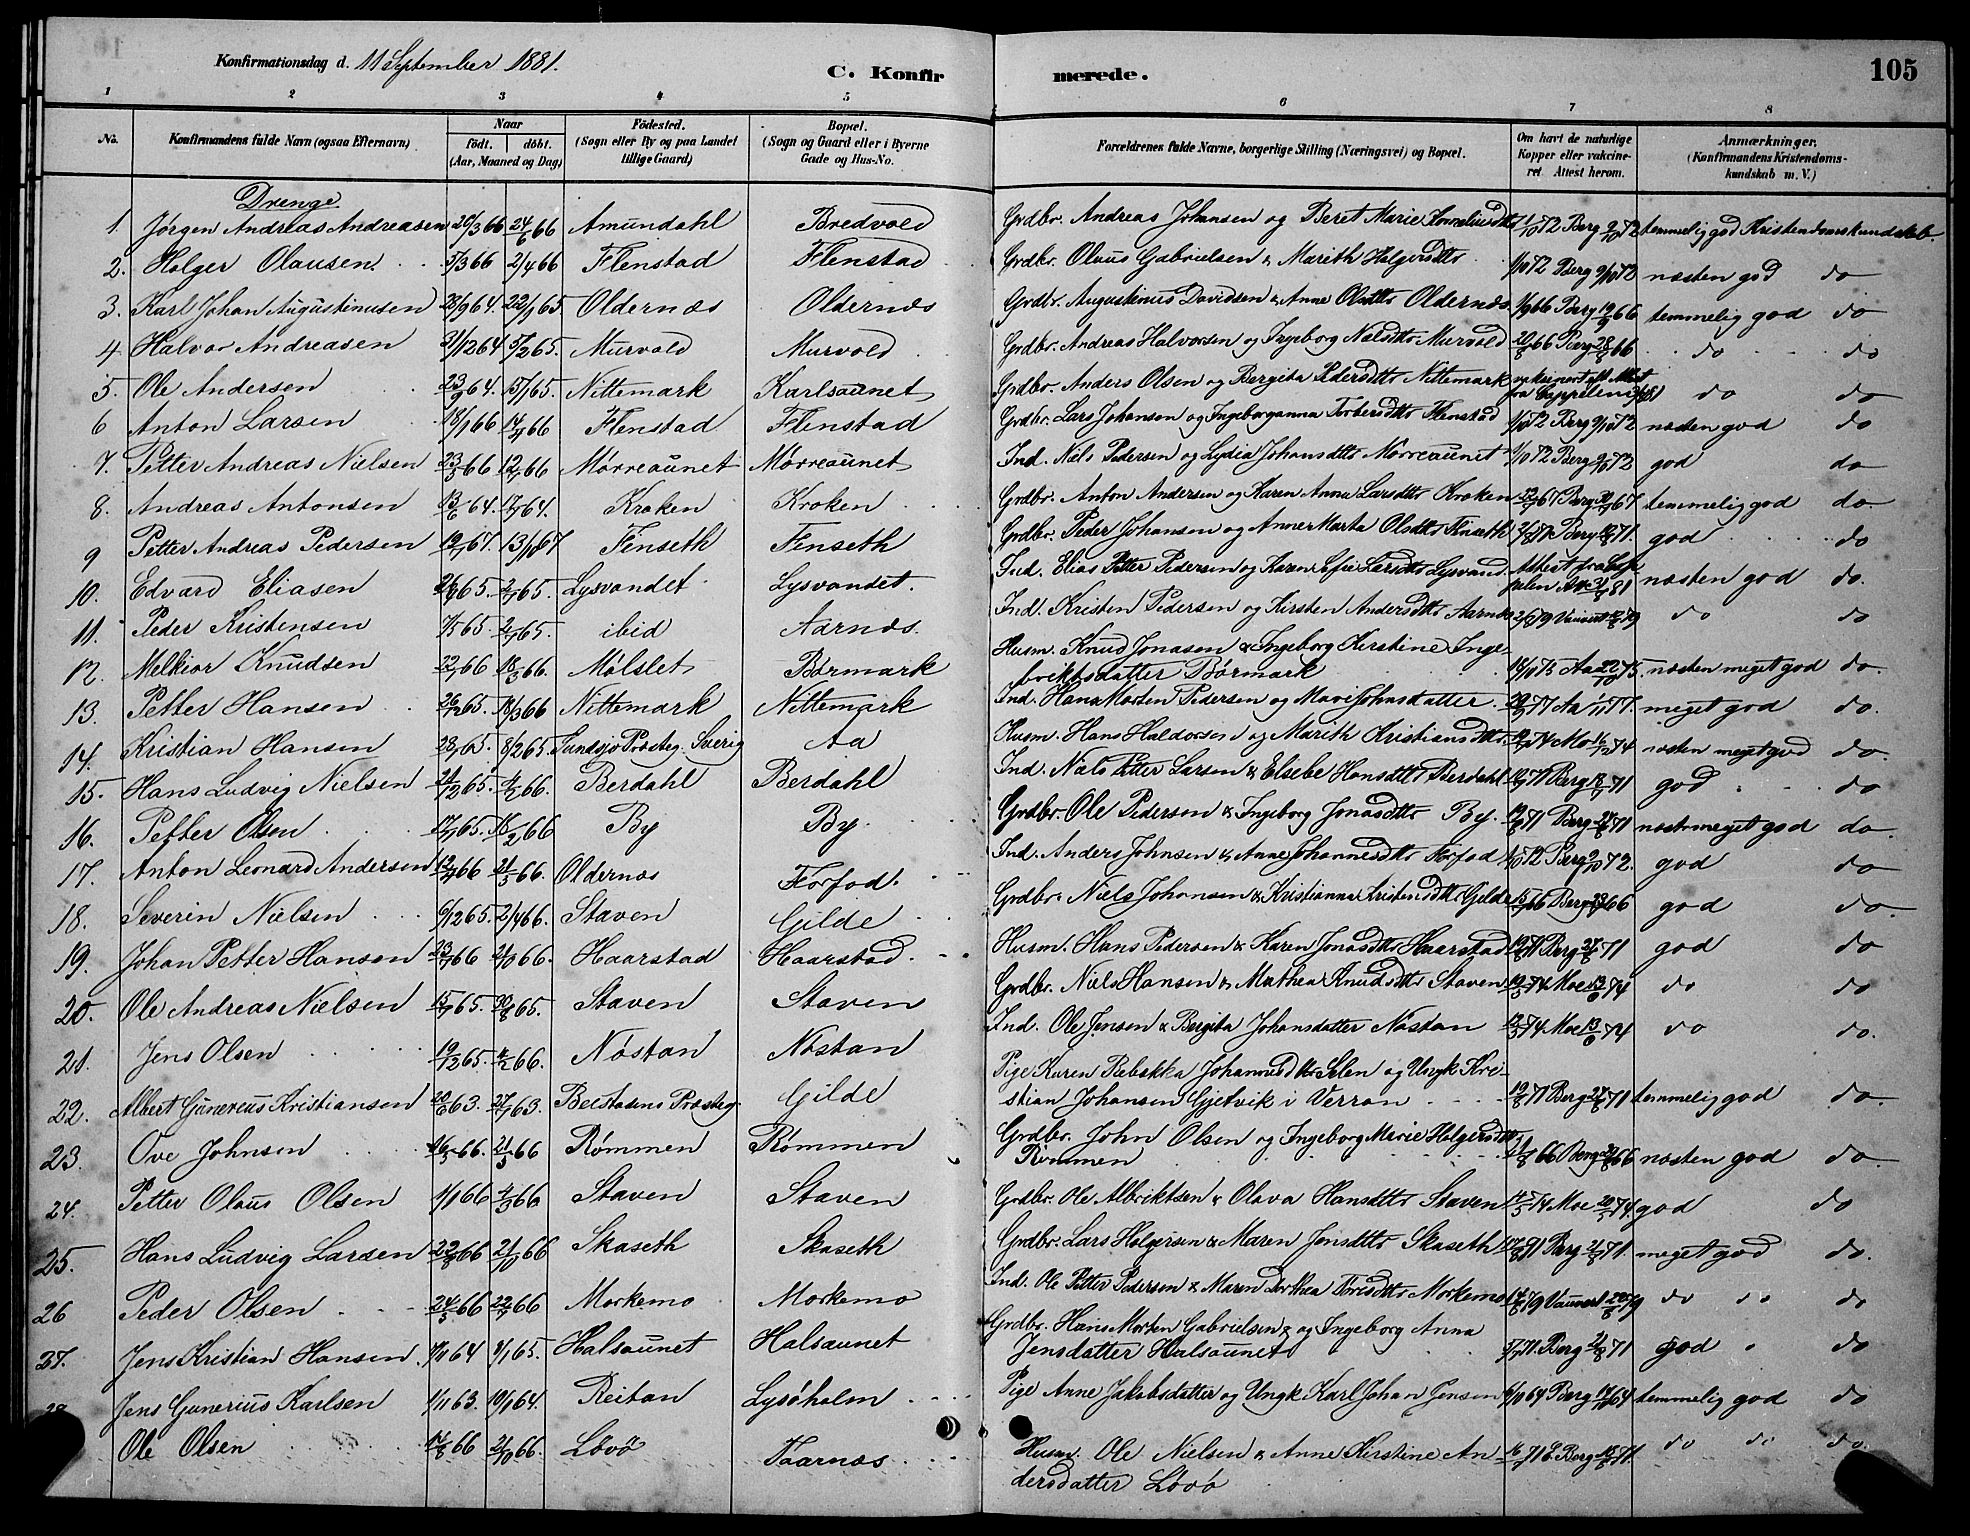 Konfirmationsdag d. 11 September 1881.
C. Konfir merede. 105
1 2 3 4 5 6 7 8
No. Konfirmandens fulde Navn (ogsaa Efternavn) Naar födt. döbt. (Aar, Maaned og Dag) Födested. (Sogn eller By og paa Landet tillige Gaard) Bopæl. (Sogn og Gaard eller i Byerne Gade og Hus-No. Forældrenes fulde Navne, borgerlige Stilling (Næringsvei) og Bopæl. Om havt de naturlige Kopper eller vakcineret Attest herom. Anmærkninger. (Konfirmandens Kristendomskundskab m. V.)
Drenge
1. Jørgen Andreas Andreasen 26/3 66 24/6 66 Amundahl Bredvold Grdbr. Andreas Johansen og Beret Marie Korneliusdttr 1/10 72 Berg 9/10 72 temmelig god Kristendomskundskab.
2. Holger Olausen 5/3 66 2/4 66 Flenstad Flenstad Grdbr. Olaus Gabrielsen & Marith Holgersdttr 1/10 72 Berg 9/10 72 næsten god do
3. Karl Johan Augustinusen 28/9 64. 22/1 65 Oldernæs Oldernæs Grdbr. Augustinus Davidsen & Anne Olsdttr Oldernæs 1/9 66 Berg 19/9 66 temmelig god do
4 Halvor Andreasen 31/12 64 5/2 65. Murvold Murvold Grdbr. Andreas Halvorsen og Ingeborg Nielsdttr Murvold 20/8 66 Berg 28/8 66 do do
5. Ole Andersen 23/9 64. 15/1 65 Nittemark Karlsaunet Grdbr. Anders Olsen og Bergita Pedersdttr Nittemark do do
6 Anton Larsen 18/1 66 Flenstad Flenstad Grdbr. Lars Johansen og Ingeborganna Torbersdttr Flenstad 1/10 72 Berg 9/10 72 næsten god do
7. Petter Andreas Nielsen Mørreaunet Mørreaunet Ind. Niels Pedersen og Lydia Johansdttr Mørreaunet 1/10 72 Berg 9/10 72 god do
8. Andreas Antonsen 13/6 64. Kroken Kroken Grdbr. Anton Andersen og Karen Anna Larsdttr Kroken temmelig god do.
9 Petter Andreas Pedersen Finseth Finseth Grdbr. Peder Johansen og Anne Marta Olsdttr Finseth god do
10. Edvard Eliasen Lysvandet Lysvandet. Ind. Elias Petter Pedersen og Karen Sofie Larsdttr Lysvand. næsten god do.
11. Peder Kristensen ibid Aarnæs. Ind. Kristen Pedersen og Kirsten Andersdttr Aarnæs do do
12. Melkior Knudsen 18/3 66. Mølslet Børmark Husm. Knud Jonasen & Ingeborg Kirstine Ingebriktsdatter Børmark næsten meget god do.
13. Petter Hansen 18/3 66 Nittemark Nittemark Ind. Hans Morten Pedersen og Mari Johnsdatter meget god do.
14. Kristian Hansen 8/2 65. Sundsjö Præsteg. Sverig Aa Husm. Hans Haldorsen og Marith Kristiansdttr næsten meget god do.
15. Hans Ludvig Nielsen 4/2 66. Berdahl Berdahl Ind. Niels Petter Larsen & Elsebe Hansdttr Berdahl god do
16. Petter Olsen 18/2 66 By By Grdbr. Ole Pedersen & Ingeborg Jonasdttr By. næsten meget god do.
17. Anton Leonard Andersen 21/5 66. Oldernæs Forfod. Ind. Anders Johnsen & Anne Johannesdttr Forfod god do
18. Severin Nielsen 6/12 65. 2/4 66. Staven Gilde Grdbr. Niels Johansen & Kristianna Kristensdttr Gilde god do.
19. Johan Petter Hansen Haarstad Haarstad Husm. Hans Pedersen & Karen Jonasdttr Haarstad god do
20. Ole Andreas Nielsen 30/8 65. Staven Staven Grdbr. Niels Hansen & Mathea Knudsdttr Staven do do
21. Jens Olsen 19/12 65. 4/2 66. Nøstan Nøstan Ind. Ole Jensen & Bergita Johansdatter Nøstan do do.
22. Albert Gunerius Kristiansen Beistadens Præsteg. Gilde Pige Karen Rebekka Johannesdttr Selen og Ungk Kristian Johansen Gjetvik i Verran temmelig god do.
23. Ove Johnsen 21/5 66 Rømmen Rømmen Grdbr. John Olsen og Ingeborg Marie Holgersdttr Rømmen næsten god do.
24. Petter Olaus Olsen 1/1 66 Staven Staven Grdbr. Ole Albriktsen & Olava Hansdttr Staven god do
25. Hans Ludvig Larsen 22/8 66 21/10 66 Skaseth Skaseth Grdbr. Lars Holgersen & Maren Jensdttr Skaseth meget god do.
26 Peder Olsen 24/5 66 22/7 66 Morkemo Morkemo Ind. Ole Petter Pedersen & Maren Dorthea Toresdttr Morkemo do do do
27. Jens Kristian Hansen Halsaunet Halsaunet Grdbr. Hans Morten Gabrielsen & og Ingeborg Anna Jensdatter Halsaunet god do
28 Jens Gunerius Karlsen 1/11 63. 10/1 64. Reitan Lysøholm Pige Anne Jakobsdatter og Ungk Karl Johan Jensen temmelig god do
Ole Olsen Løvø Taarnæs Husm. Ole Nielsen & Anne Kirstine Andersdatter Løvø do do do.